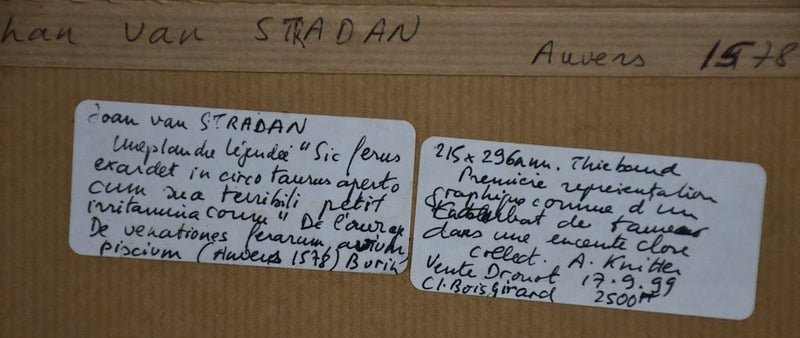 han van STRADAN
Anvers 1578
Joan van STRADAN
Une planche légendée "Sic ferus
exardet in circo taurus aperto
cum sua terribili petit
irritamina cornu" De l'ouvrage
De venationes ferarum, avium,
piscium (Anvers 1578) Burin
215 x 296 mm. Thiebaud
Première représentation
graphique connue d'un
combat de taureaux
dans une enceinte close
Collect. A. Knitter
Vente Drouot 17.9.99
Cl. Bois Girard 2500